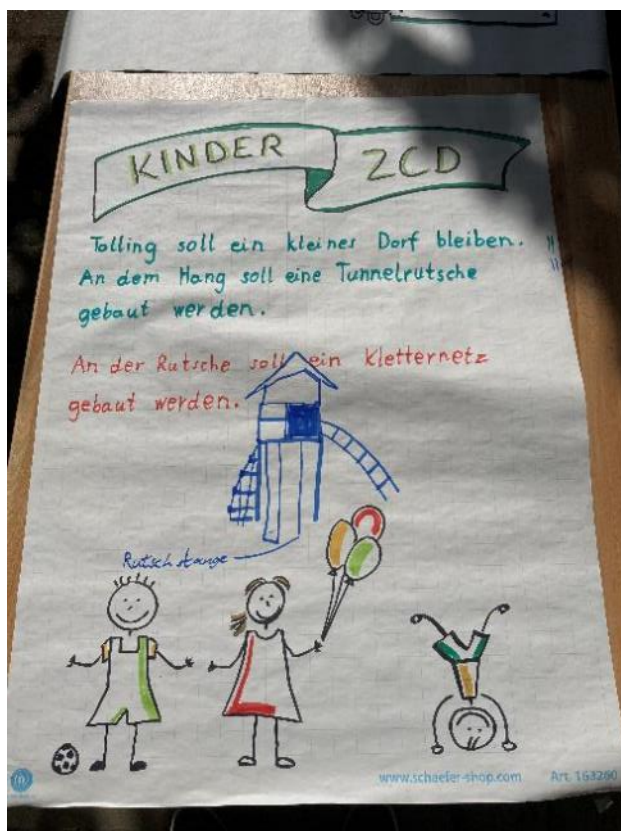 KINDER ZCD
Tolling soll ein kleines Dorf bleiben. "
An dem Hang soll eine Tunnelrutsche "
gebaut werden.
An der Rutsche soll ein Kletternetz
gebaut werden.
Rutschstange
www.schaefer-shop.com Art. 163260